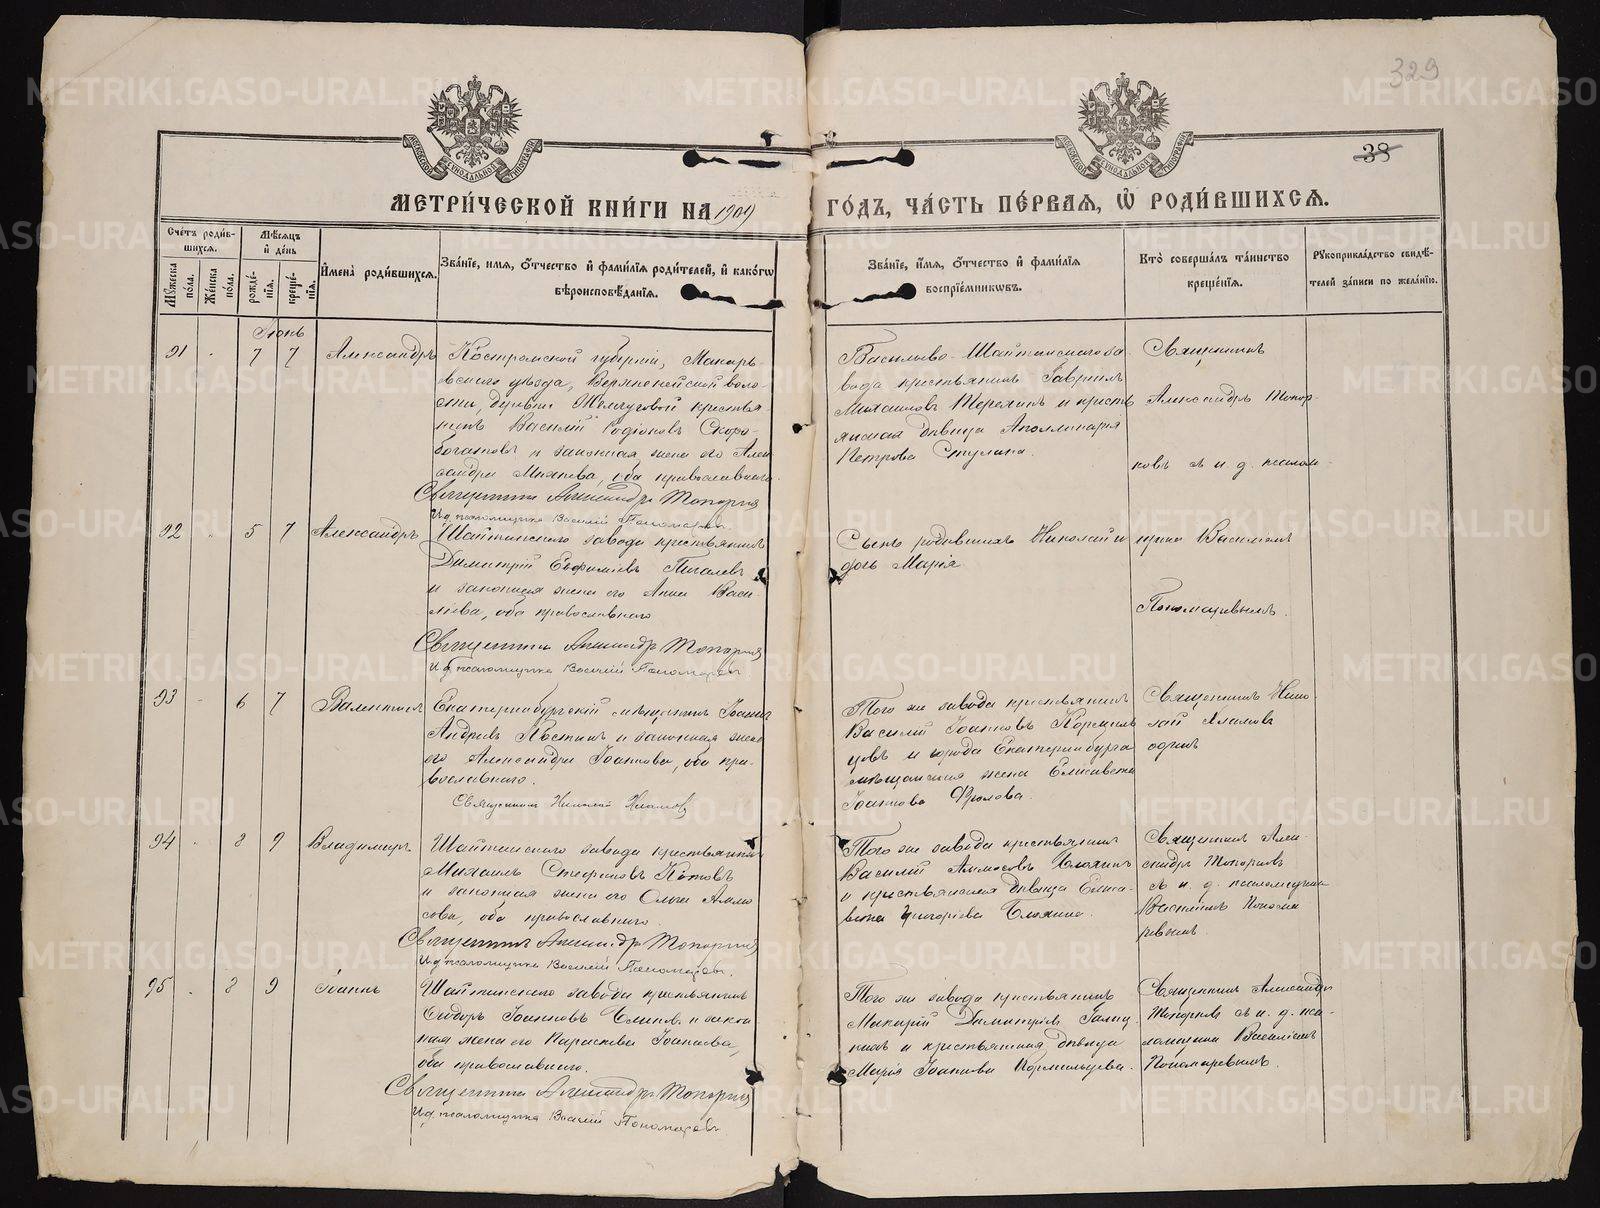 329
38
МОСКОВСКОЙ СѴНОДАЛЬНОЙ ТИПОГРАФІИ
МОСКОВСКОЙ СѴНОДАЛЬНОЙ ТИПОГРАФІИ
МЕТРИ́ЧЕСКОЙ КНИ́ГИ НА 1909 ГО́ДЪ, ЧА́СТЬ ПЕ́РВАЯ, Ѡ҆ РОДИ́ВШИХСЯ.
Сче́тъ роди́в-
шихся.
Мѣ́сяцъ
и҆ де́нь
Мꙋ́жеска по́ла.
Же́нска по́ла.
рожде́-
нїя.
креще́-
нїя.
И҆мена̀ роди́вшихся.
Зва́нїе, и҆́мя, ѻ҆́тчество и҆ фами́лїя роди́телей, и҆ како́гѡ
вѣроисповѣ́данїя.
Зва́нїе, и҆́мя, ѻ҆́тчество и҆ фами́лїя
воспрїе́мниковъ.
Кто̀ соверша́лъ та́инство
креще́нїя.
Рꙋкоприкла́дство свидѣ́-
телей за́писи по жела́нїю.
Іюнь
91 7 7 Александръ
Костромской губерніи, Макарь-
евскаго уѣзда,
крестья-
нинъ Василій Родіоновъ Скоро-
богатовъ и законная жена его Алек
сандра оба православнаго
Священникъ Александръ Топорковъ
И. д. псаломщика Василій Пономаревъ
Васильево-Шайтанскаго за
вода крестьянинъ Гавріилъ
и кресть
янская дѣвица Аполлинарія
Петрова
Священникъ
Александръ Топор-
ковъ съ и. д. псалом-
щика Василіемъ
Пономаревымъ.
92 5 7 Александръ
Шайтанскаго завода крестьянинъ
Димитрій Евфиміевъ Пигалевъ
и законная жена его Анна Васи-
льева, оба православнаго
Священникъ Александръ Топорковъ
И. д. псаломщика Василій Пономаревъ
Сынъ родившихъ Николай и
дочь Марія
93 6 7 Валентинъ
Екатеринбургскій мѣщанинъ Іоаннъ
Андреевъ Костинъ и законная жена
его Александра Іоаннова, оба пра-
вославнаго.
Священникъ Николай
Того же завода крестьянинъ
Василій Іоанновъ Кормиль
цевъ и города Екатеринбурга
мѣщанская жена Елисавета
Іоаннова Фролова.
Священникъ Нико-
лай
одинъ
94 8 9 Владимиръ
Шайтанскаго завода крестьянинъ
Михаилъ Стефановъ Котовъ
и законная жена его Ольга Аммо
сова, оба православнаго
Священникъ Александръ Топорковъ
И. д. псаломщика Василій Пономаревъ.
Того же завода крестьянинъ
Василій Аммосовъ Блохинъ
и крестьянская дѣвица Елиса-
вета Григоріева Блохина.
Священникъ Алек
сандръ Топорковъ
съ и. д. псаломщика
Василіемъ Понома
ревымъ
95 8 9 Іоаннъ
Шайтанскаго завода крестьянинъ
Сидоръ Іоанновъ и закон
ная жена его Параскева Іоаннова,
оба православнаго.
Священникъ Александръ Топорковъ
И. д. псаломщика Василій Пономаревъ
Того же завода крестьянинъ
Макарій Димитріевъ
и крестьянская дѣвица
Марія Іоаннова Кормильцева.
Священникъ Александръ
Топорковъ съ и. д. пса-
ломщика Василіемъ
Пономаревымъ.
METRIKI.GASO-URAL.RU